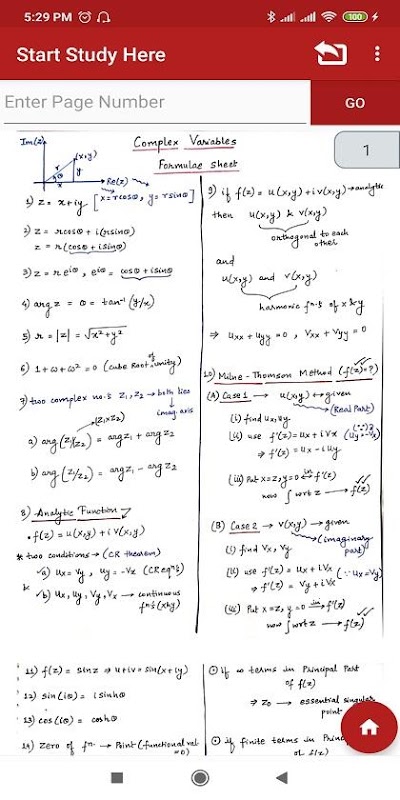 5:29 PM
100
Start Study Here
Enter Page Number
GO
1
Complex Variables
Formulae sheet
Im(z)
(x,y)
r
y
θ
x
Re(z)
1) z = x+iy [x=rcosθ, y=rsinθ]
2) z = rcosθ + i(rsinθ)
z = r(cosθ + isinθ)
3) z = re^iθ, e^iθ = cosθ + isinθ
4) arg z = θ = tan⁻¹ (y/x)
5) r = |z| = √x²+y²
6) 1+ω+ω² = 0 (cube Root of unity)
7) two complex no.s z₁, z₂ → both lies
imag. axis
(z₁×z₂)
a) arg(z₁z₂) = arg z₁ + arg z₂
b) arg(z₁/z₂) = arg z₁ - arg z₂
8) Analytic Function
• f(z) = u(x,y) + iv(x,y)
* two conditions → (CR theorem)
a) ux = vy, uy = -vx (CR eqⁿs)
b) ux, uy, vy, vx → continuous
fⁿs (x&y)
9) if f(z) = u(x,y) + iv(x,y) → analytic
then u(x,y) & v(x,y)
orthogonal to each
other
and
u(x,y) and v(x,y)
harmonic fⁿ-s of x & y
⇒ uxx + uyy = 0, vxx + vyy = 0
10) Milne-Thomson Method (f(z)=?)
(A) Case 1 → u(x,y) → given
(Real Part)
(i) find ux, uy
(ii) use f'(z) = ux + ivx (∵ uy = -vx)
⇒ f'(z) = ux - iuy
(iii) Put x=z, y=0 in f'(z)
now ∫ wrt z → f(z)
(B) Case 2 → v(x,y) → given
(imaginary
part)
(i) find vx, vy
(ii) use f'(z) = ux + ivx (∵ ux = vy)
⇒ f'(z) = vy + ivx
(iii) Put x=z, y=0 in f'(z)
now ∫ wrt z → f(z)
11) f(z) = sinz ⇒ u+iv = sin(x+iy)
12) sin(iθ) = isinhθ
13) cos(iθ) = coshθ
14) zero of fⁿ → Point (functional val
=0)
⊙ if ∞ terms in Principal Part
of f(z)
⇒ z₀ → essential singular
point
⊙ if finite terms in Princ
of f(z)